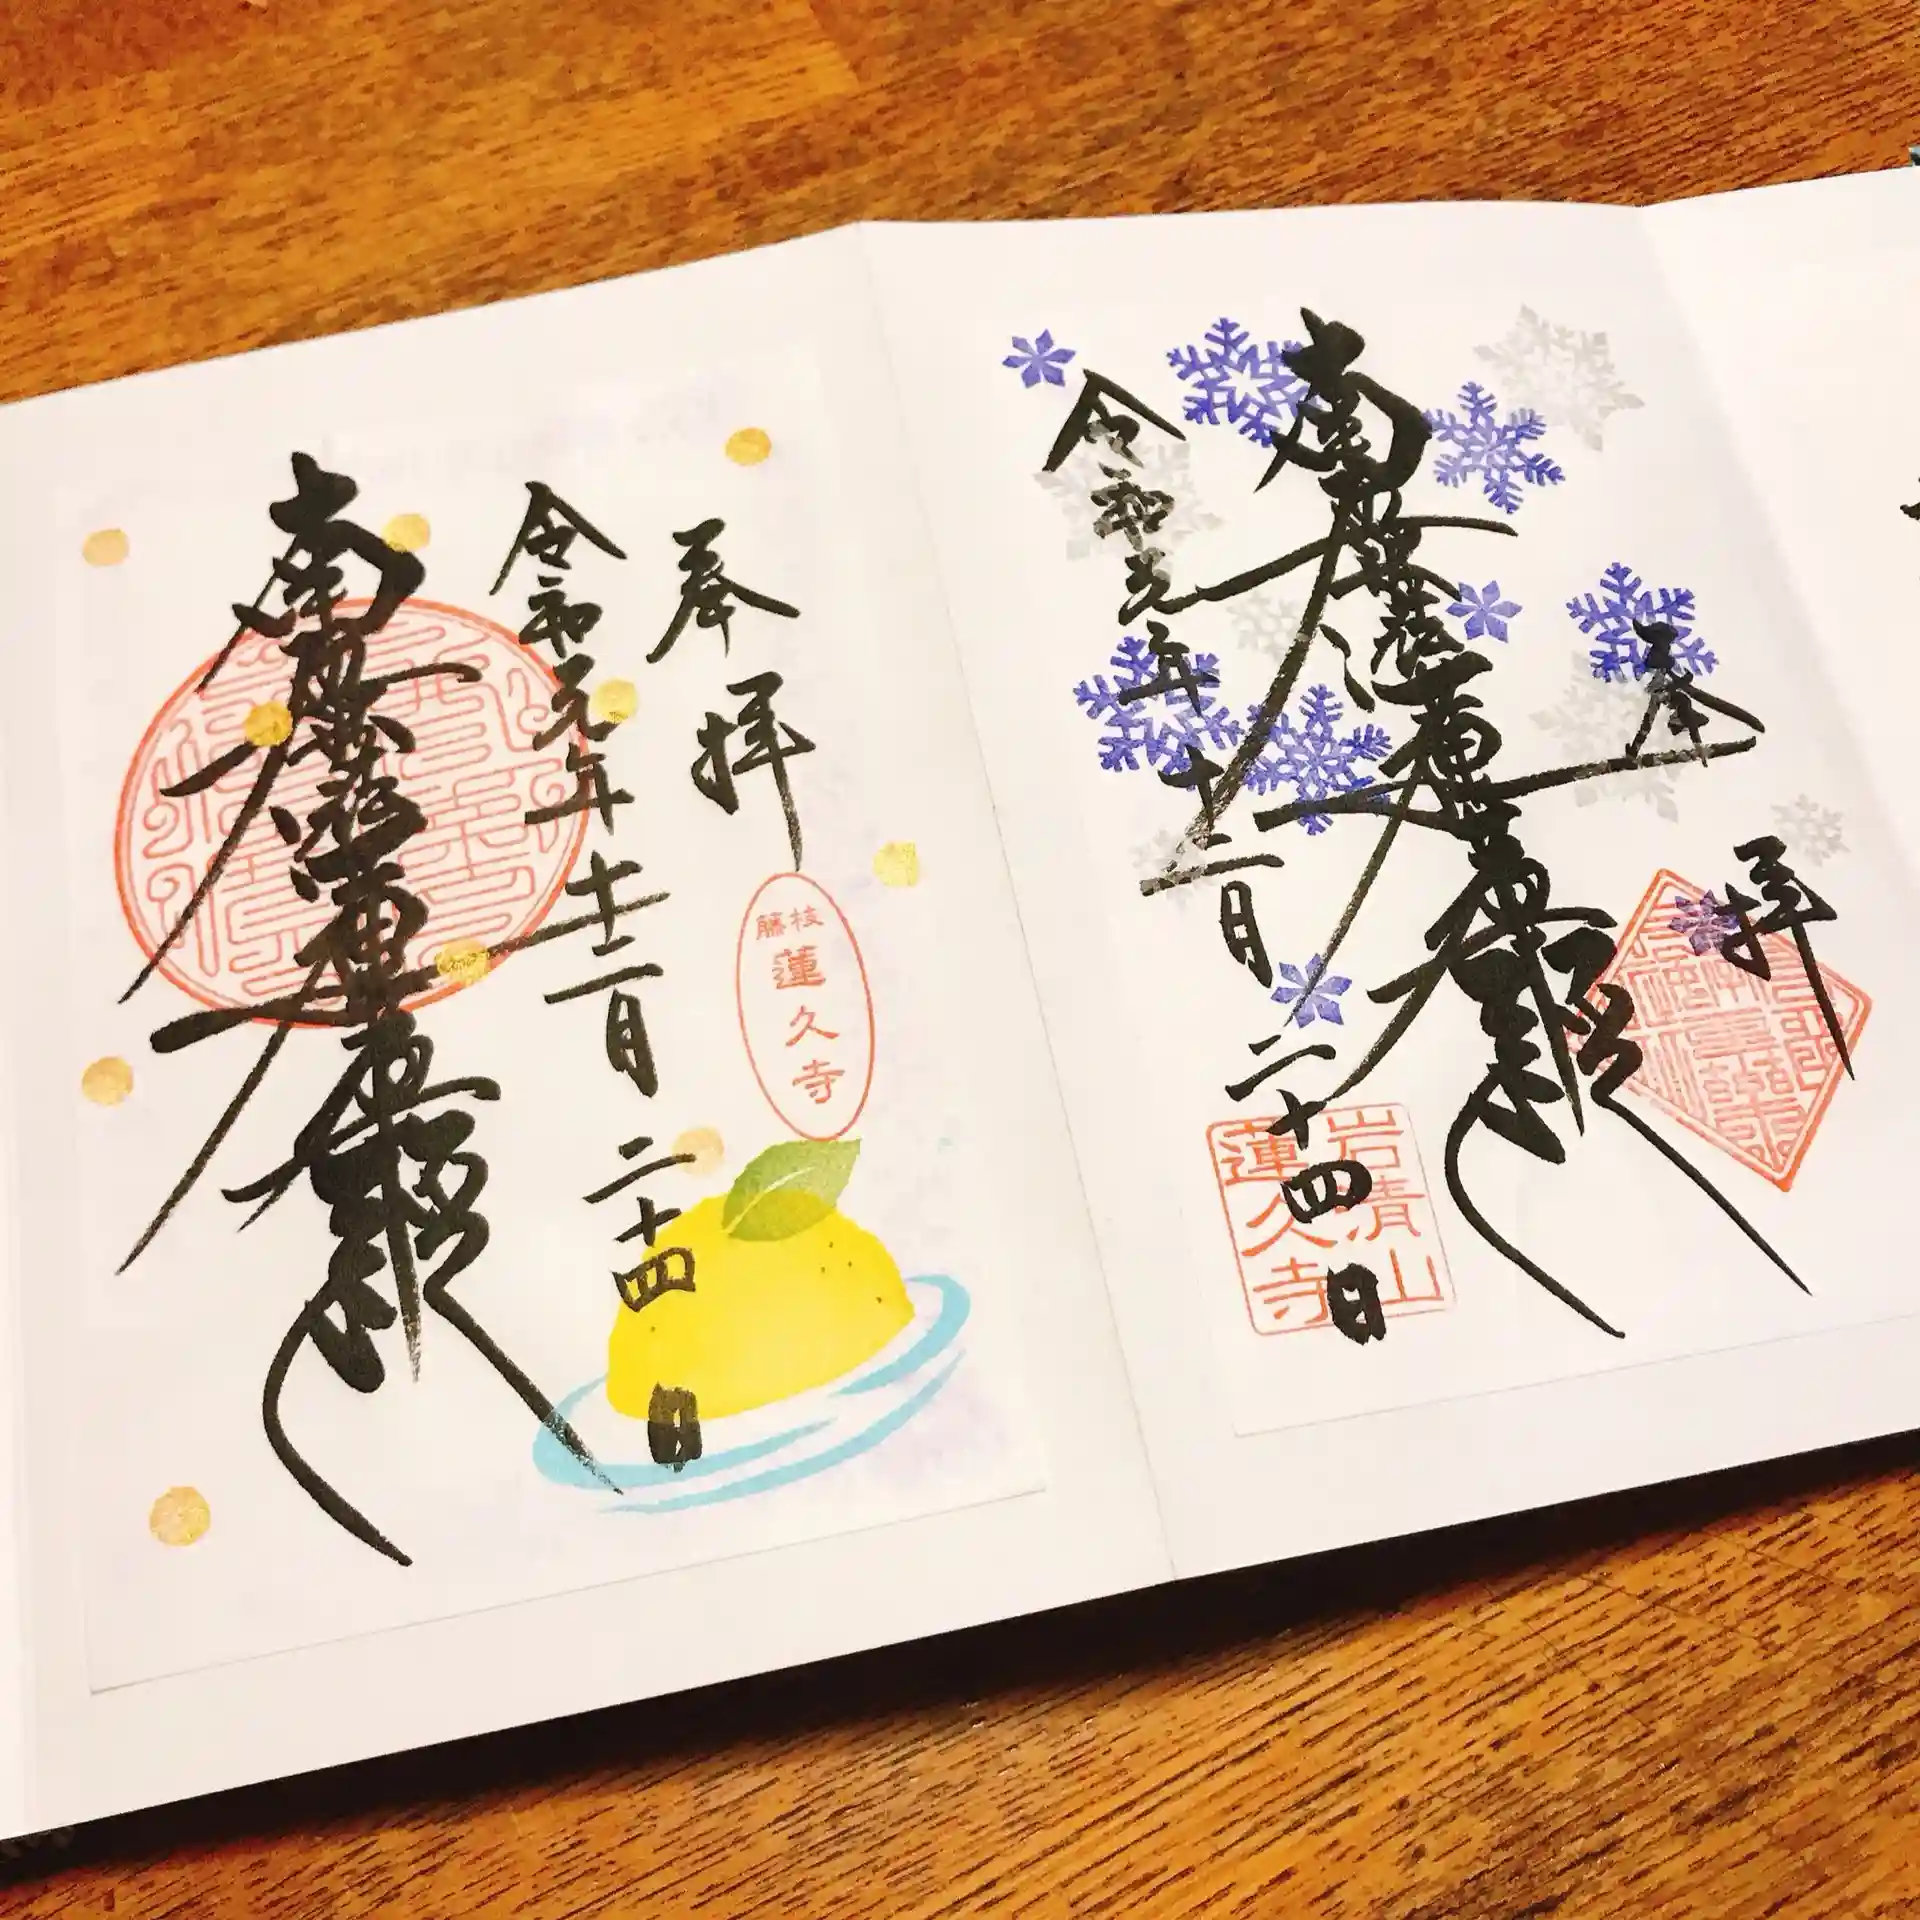 奉拝
藤枝
蓮久寺
令和元年十二月二十四日
南無妙法蓮華経
奉拝
南無妙法蓮華経
令和元年十二月二十四日
岩清山
蓮久寺